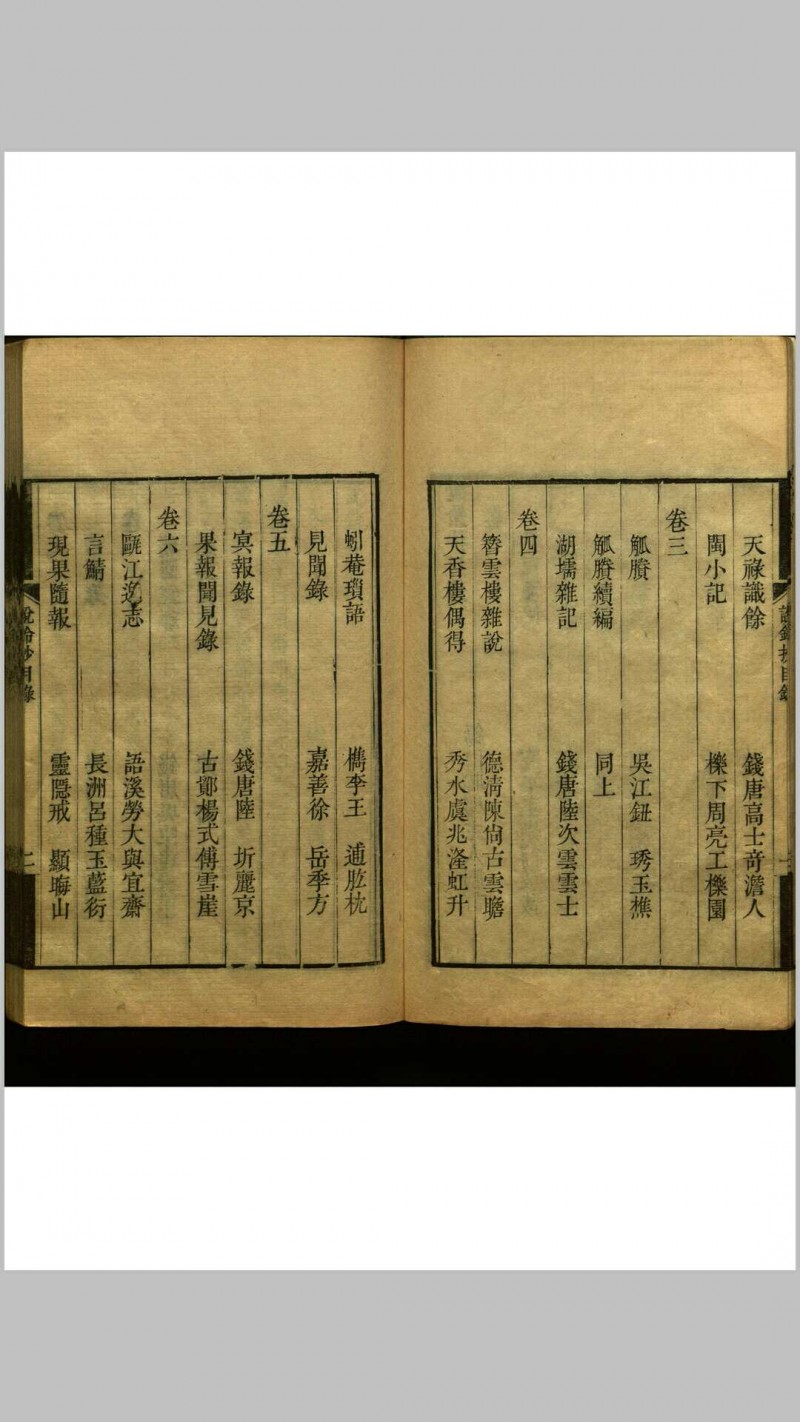 天祿識餘 錢唐高士奇澹人
閩小記 櫟下周亮工櫟園
卷三
觚賸 吳江鈕 琇玉樵
觚賸續編 同上
湖壖雜記 錢唐陸次雲雲士
卷四
簪雲樓雜說 德清陳尙古雲瞻
天香樓偶得 秀水虞兆漋虹升
蚓菴瑣語 檇李王 逋肱枕
見聞錄 嘉善徐 岳季方
卷五
冥報錄 錢唐陸 圻麗京
果報聞見錄 古鄞楊式傅雪崖
卷六
甌江逸志 語溪勞大與宜齋
言鯖 長洲呂種玉藍衍
現果隨報 靈隱戒 顯晦山
說鈴抄目錄 二